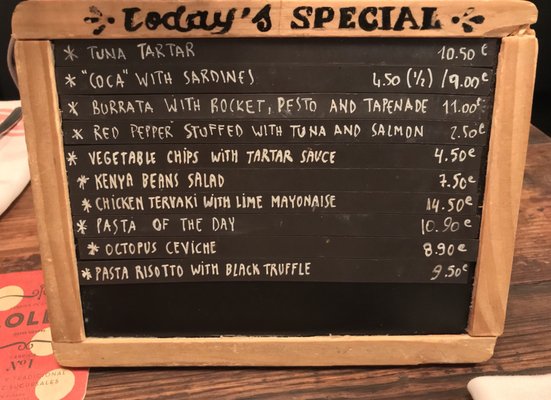 today's SPECIAL
* TUNA TARTAR 10.50€
* "COCA" WITH SARDINES 4.50 (½) / 9.00€
* BURRATA WITH ROCKET, PESTO AND TAPENADE 11.00€
* RED PEPPER STUFFED WITH TUNA AND SALMON 2.50€
* VEGETABLE CHIPS WITH TARTAR SAUCE 4.50€
* KENYA BEANS SALAD 7.50€
* CHICKEN TERYAKI WITH LIME MAYONAISE 14.50€
* PASTA OF THE DAY 10.90€
* OCTOPUS CEVICHE 8.90€
* PASTA RISOTTO WITH BLACK TRUFFLE 9.50€